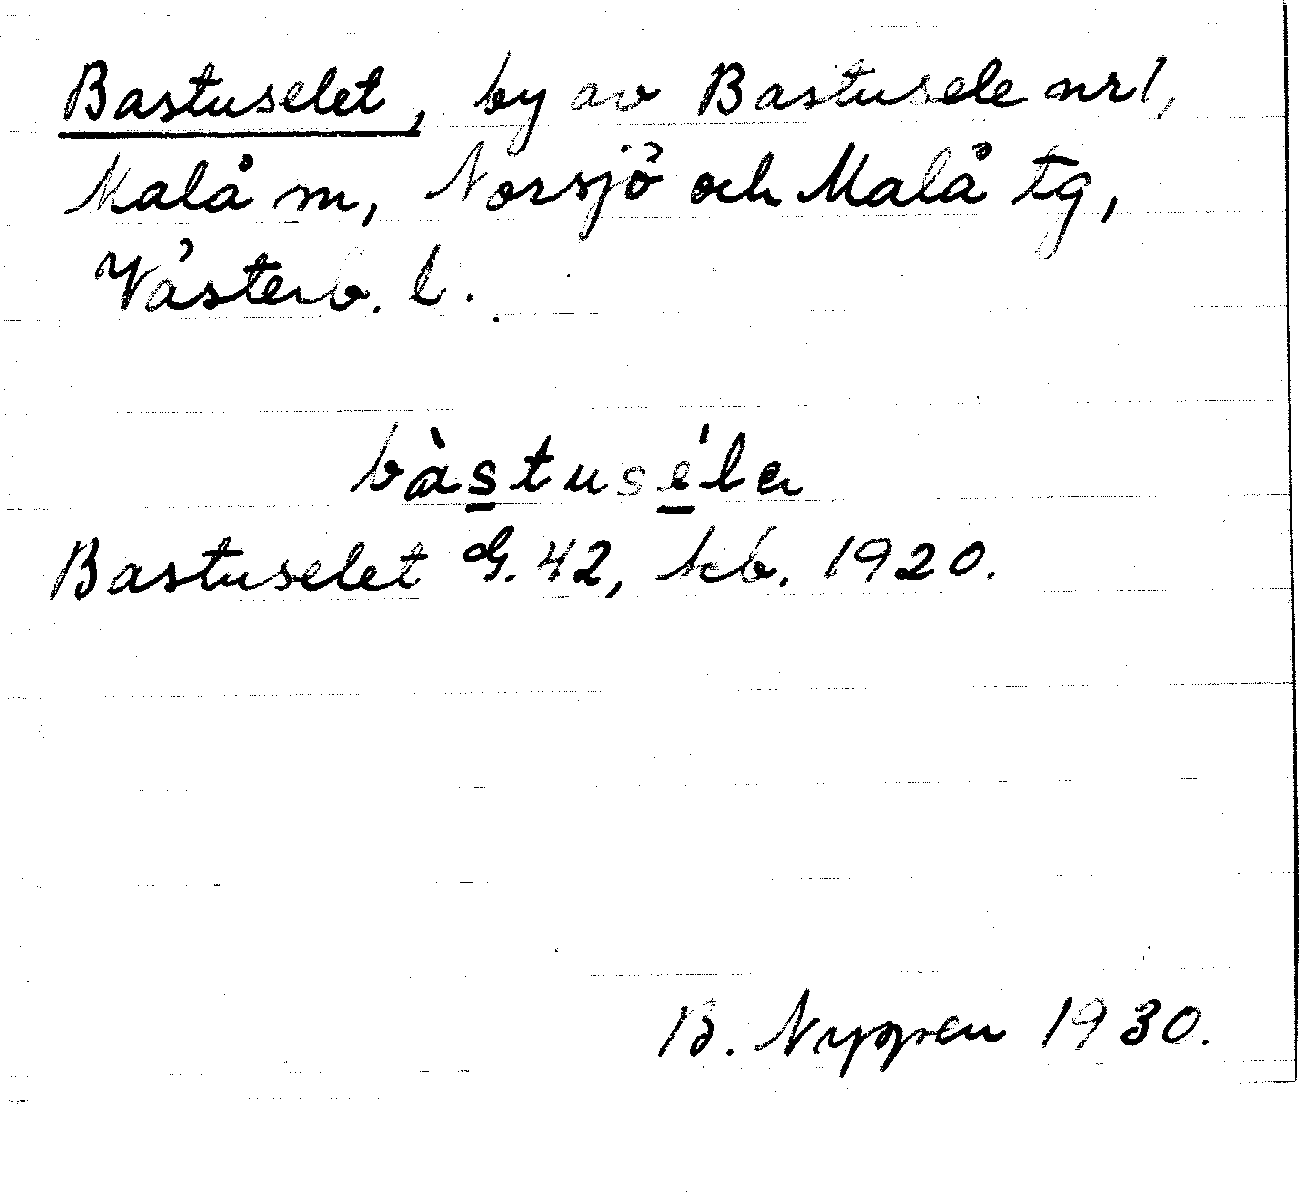 Bastuselet, by av Bastusele nr 1,
Malå sn, Norsjö och Malå tg,
Västerb. l.
bàstuséla
Bastuselet G. 42, kb. 1920.
B. Nyppen 1930.